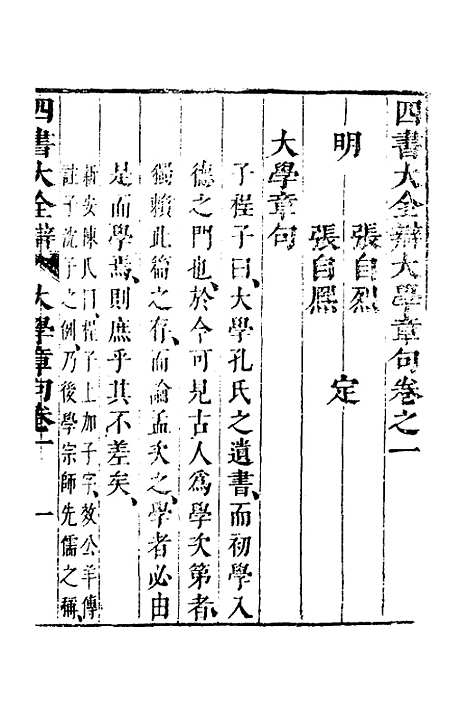 四書大全辯大學章句卷之一
張自烈
明 定
張自熙
大學章句
子程子曰、大學孔氏之遺書、而初學入
德之門也、於今可見古人爲學次第者、
獨賴此篇之存、而論孟次之、學者必由
是而學焉、則庶乎其不差矣、
新安陳氏曰、程子上加子字、效公羊傳
註子沈子之例、乃後學宗師先儒之稱、
四書大全辯 大學章句卷一 一